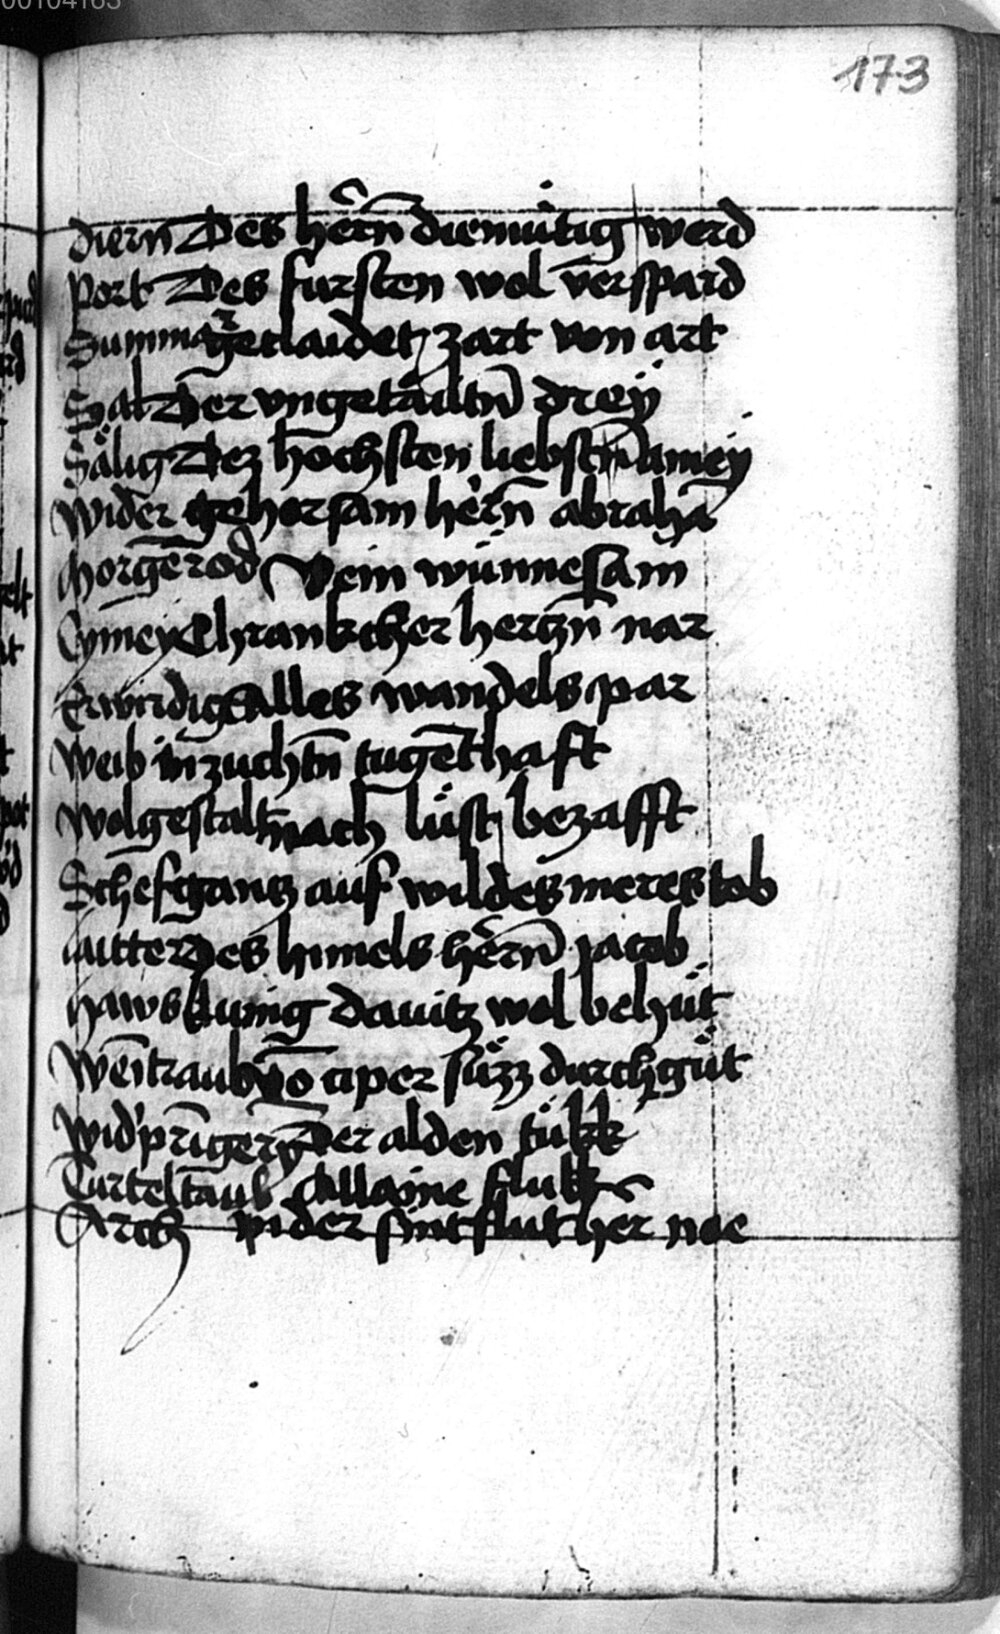 173
diern Des hern̄ diemütig werd
Port Des fursten wol v̄erspard
Summer geclaidet zart von art
Sal Der vngetäutn̄ dreÿ
Sälig Dez hochsten liebstn̄ ameÿ
wider gehorsam hern̄ abrahā
Morgēnrod Vein wünnesam
Cymey Chrankcher hertzn̄ nar
Erwirdig Alles wandels par
weib in zuchtn̄ tugēthaft
wolgestalt nach lüst bezafft
Schefgantz auf wildes meres tob
laitter Des himels hern̄ jacob
haws kunig dauitz wol behüt
Wēitraub vō ciper süzz durchgüt
wid'pringerȳ Der alden tükk
Turteltaub Allaine flukk
Arch wider sintflut her noe